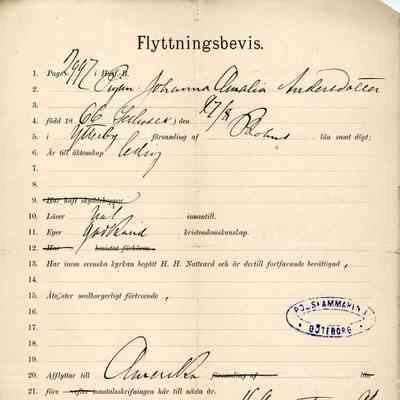 Flyttningsbevis.
1. Pag. 1997 i Husf. B.
2. Pigan Johanna Amalia Andersdotter
3.
4. född 18 66 den 27/8
5. i Ytterby församling af Bohus län samt döpt;
6. Är till äktenskap ledig
7.
8.
9. Har haft skyddskoppor
10. Läser väl innantill.
11. Eger godkänd kristendomskunskap.
12. Har bevistat förhören.
13. Har inom svenska kyrkan begått H. H. Nattvard och är dertill fortfarande berättigad,
14.
15. Åtnjuter medborgerligt förtroende,
16.
17.
POLISKAMMAREN I
GÖTEBORG
18.
19.
20. Afflyttar till Amerika församling af län
21. före efter mantalsskrifningen här till nästa år.